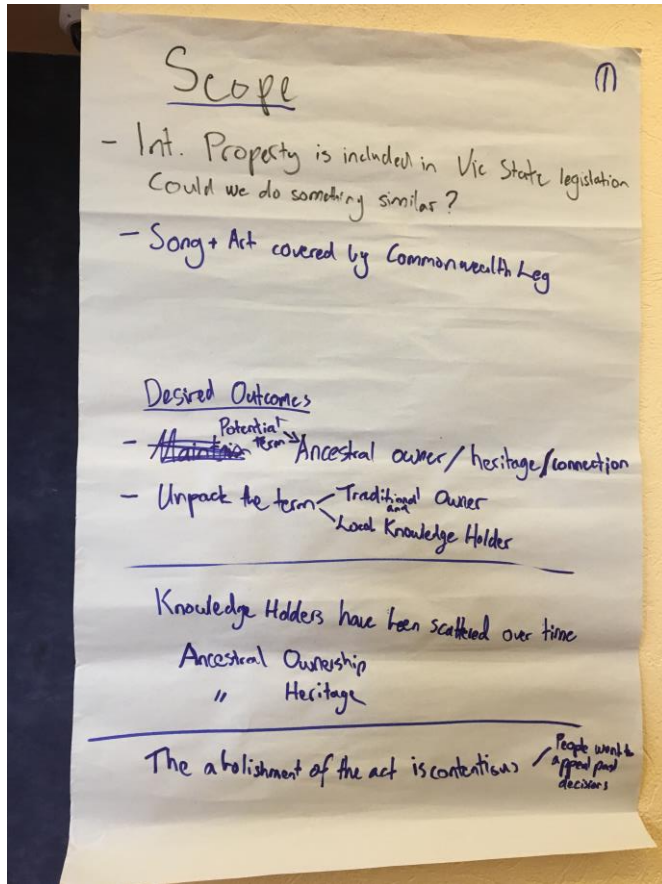 Scope
①
- Int. Property is included in Vic State legislation
Could we do something similar?
- Song + Art covered by Commonwealth Leg
Desired Outcomes
- Maintain Potential term Ancestral owner/heritage/connection
- Unpack the term Traditional Owner
and
Local Knowledge Holder
Knowledge Holders have been scattered over time
Ancestral Ownership
" Heritage
The abolishment of the act is contentious
People want to
appeal past
decisions